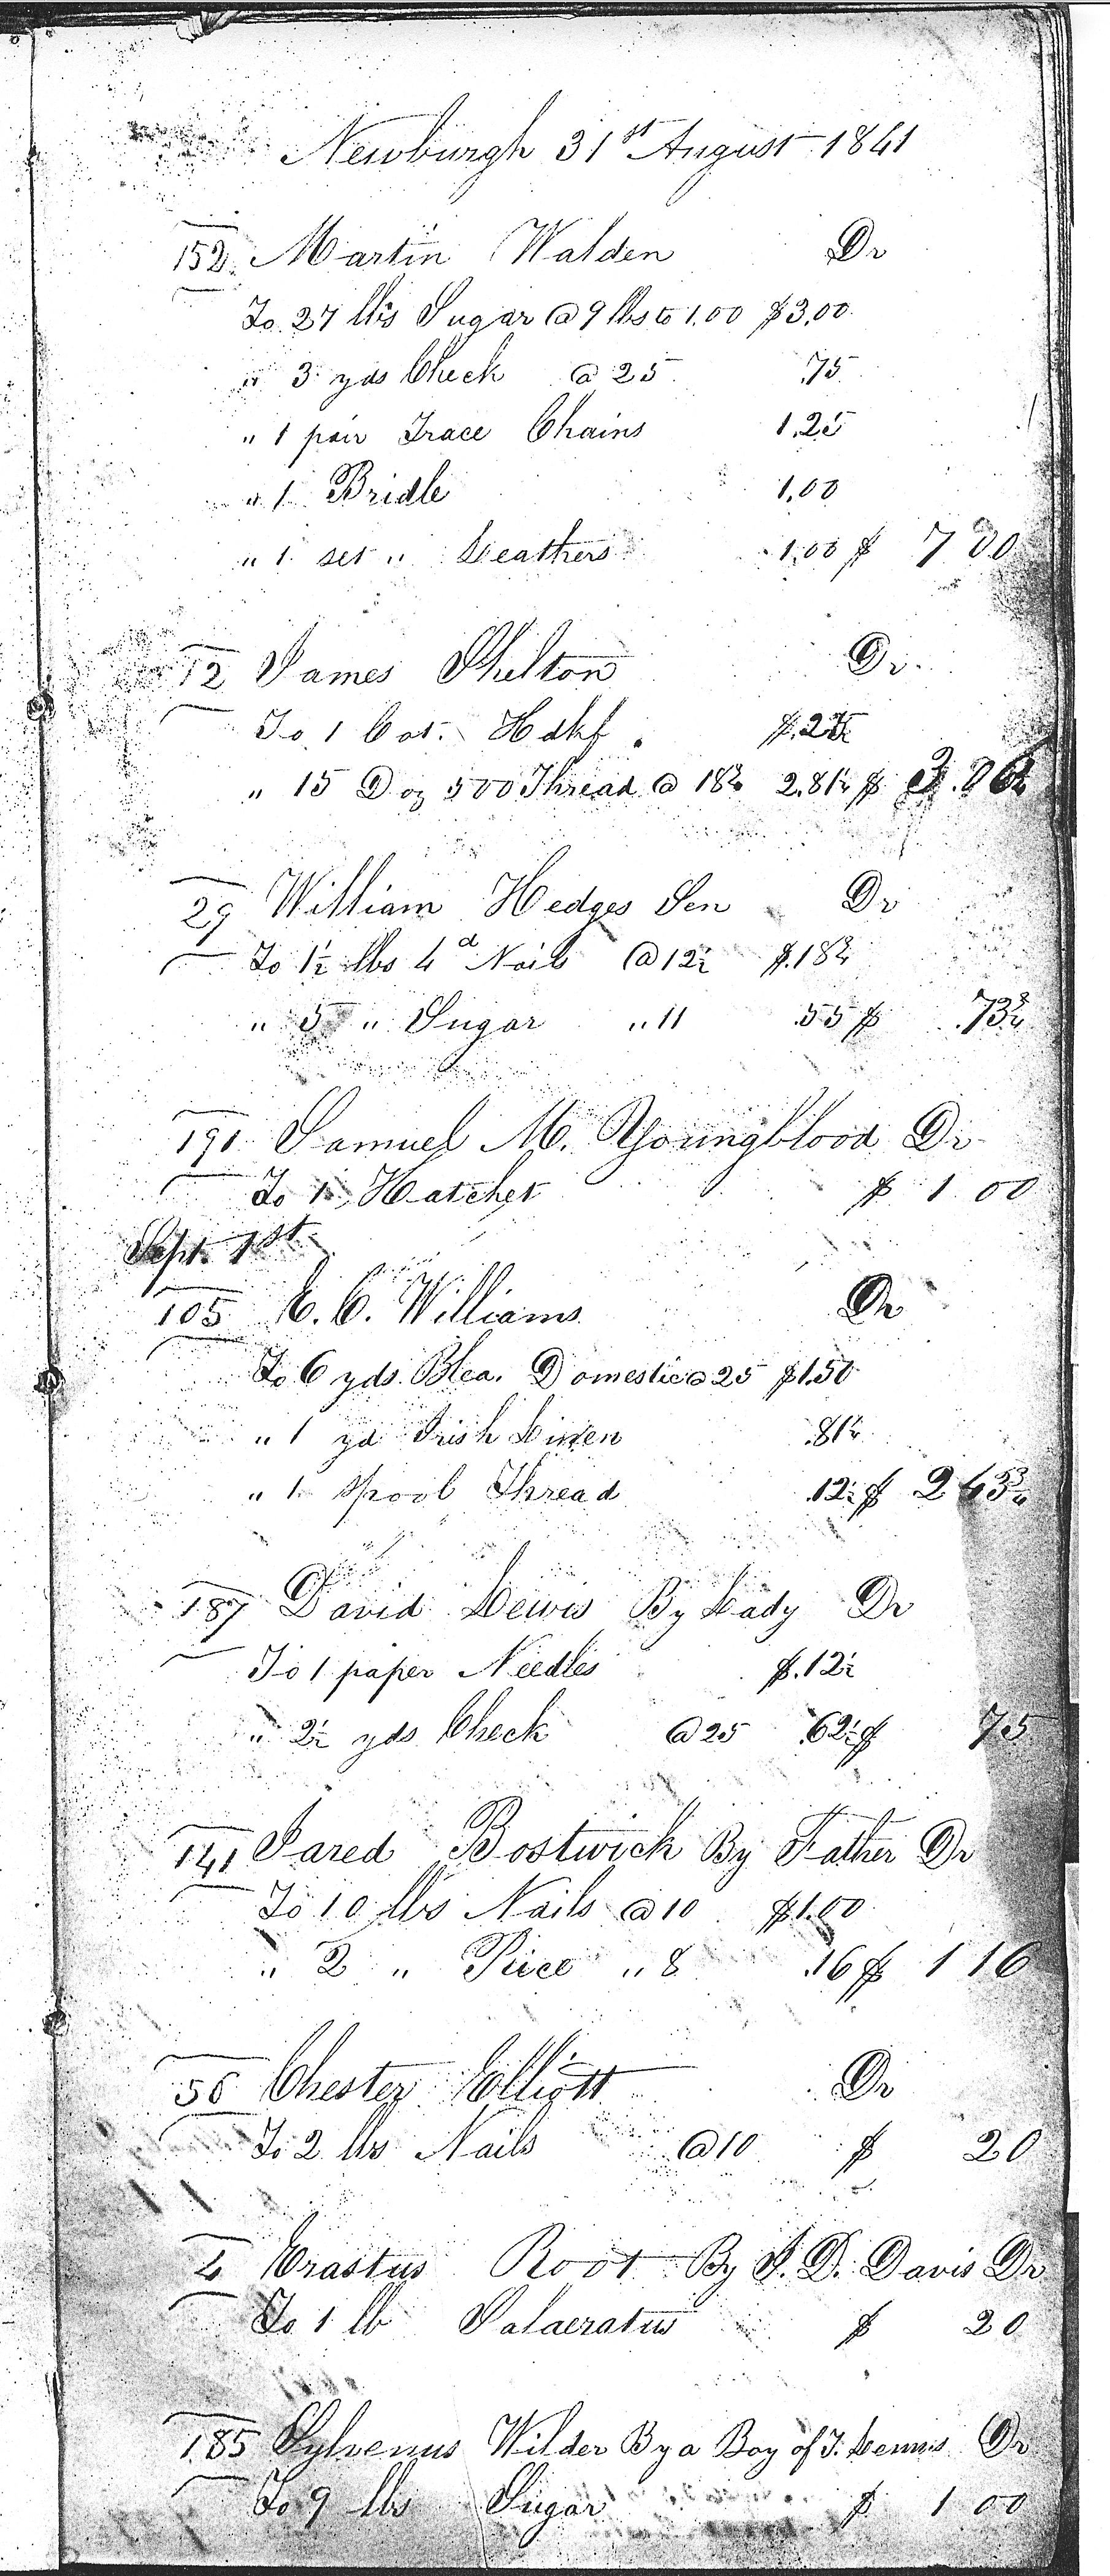 Newburgh 31st August 1841
152 Martin Walden Dr
To 27 lbs Sugar @ 9 lbs to 1.00 $3.00
" 3 yds Check @ 25 .75
" 1 pair Trace Chains 1.25
" 1 Bridle 1.00
" 1 set " Leathers 1.00 $ 7 00
12 James Shelton Dr
To 1 Cot. Hdkf. $.25
" 15 Doz 500 Thread @ 18¾ 2.81¼ $ 3.06¼
29 William Hedges Sen Dr
To 1½ lbs 4d Nails @ 12½ $.18¾
" 5 " Sugar " 11 .55 $ .73¾
191 Samuel M. Youngblood Dr
To 1 Hatchet $ 1 00
Sept. 1st
105 E. C. Williams Dr
To 6 yds. Blea. Domestic @ 25 $1.50
" 1 yd Irish Linen .81¼
" 1 spool Thread .12½ $ 2 43¾
187 David Lewis By Lady Dr
To 1 paper Needles $.12½
" 2½ yds Check @ 25 .62½ $ 75
141 Jared Bostwick By Father Dr
To 10 lbs Nails @ 10 $1.00
" 2 " Rice " 8 .16 $ 1 16
56 Chester Elliott Dr
To 2 lbs Nails @ 10 $ 20
4 Erastus Root By J. D. Davis Dr
To 1 lb Salaeratus $ 20
185 Sylvenus Wilder By a Boy of J. Dr
To 9 lbs Sugar $ 1 00